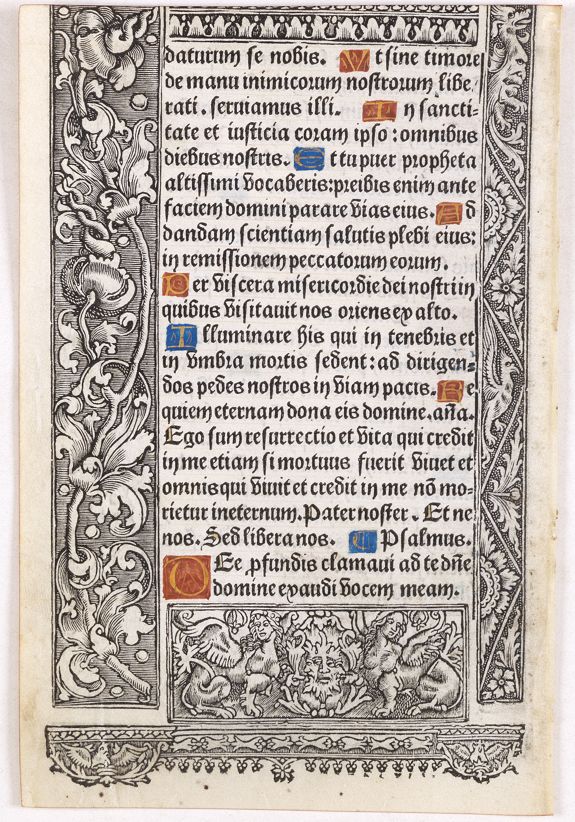 daturum se nobis. Ut sine timore
de manu inimicorum nostrorum libe
rati. seruiamus illi. In sancti⸗
tate et iusticia coram ipso: omnibus
diebus nostris. Et tu puer propheta
altissimi vocaberis: preibis enim ante
faciem domini parare vias eius. Ad
dandam scientiam salutis plebi eius:
in remissionem peccatorum eorum.
Per viscera misericordie dei nostri in
quibus visitauit nos oriens ex alto.
Illuminare his qui in tenebris et
in vmbra mortis sedent: ad dirigen⸗
dos pedes nostros in viam pacis. Re
quiem eternam dona eis domine. añā.
Ego sum resurrectio et vita qui credit
in me etiam si mortuus fuerit viuet et
omnis qui viuit et credit in me nõ mo⸗
rietur ineternum. Pater noster. Et ne
nos. Sed libera nos. Psalmus.
De ꝓfundis clamaui ad te dñe
domine exaudi vocem meam.